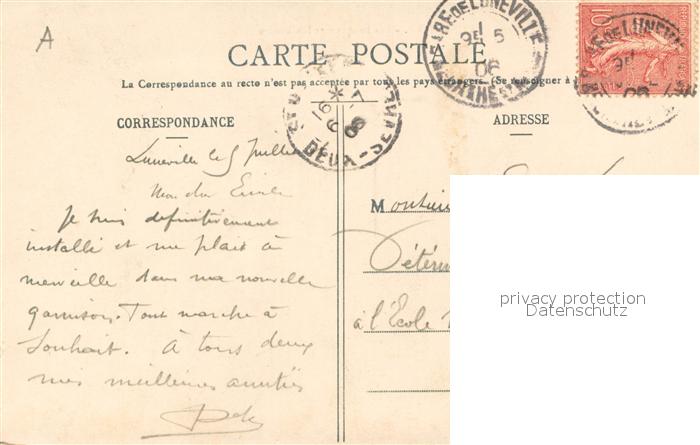 A
CARTE POSTALE
La Correspondance au recto n'est pas acceptée par tous les pays étrangers. (Se renseigner à
CORRESPONDANCE
ADRESSE
GARE DE LUNEVILLE
5
06
16 * 7
6 06
DEUX-SEVRES
10
Luneville le 5 Juillet
Mon cher
Je suis definitivement
installé et me plait à
merveille dans ma nouvelle
garnison. Tout marche à
souhait. A tous deux
mes meilleures amitiés
Monsieur
Vétérin
à l'Ecole
privacy protection
Datenschutz